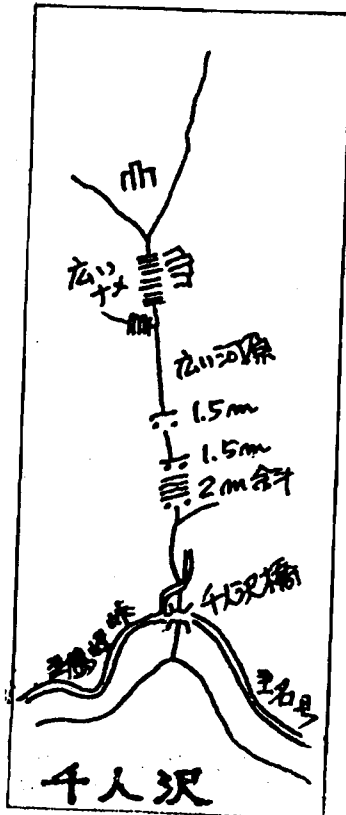 広い
ナメ
広い河原
1.5m
1.5m
2m斜
千人沢橋
千人沢